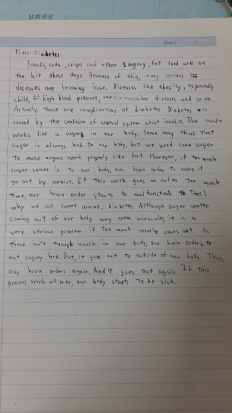 Title: Diabetes
Snacks, soda, chips and other sugary, fat food are on
the hit these days. Because of this, many serious
diseases are becoming issue. Diseases like obesity, especially
child, high blood pressure, cardiovascular diseases and so on.
Actually, those are complications of diabetes. Diabetes is
caused by the confusion of control system about insulin. The insulin
works like a in our body. Some may think that
sugar is always bad to our body, but we need some sugar
to make organs work properly like that. However, if too much
sugar comes in to our body, our brain orders to make it
go out by urine. If this work goes on and on too much
time, our brain order starts to malfunction. That's
why we call sweet urine, diabetes. Although sugar water
coming out of our body may seem miraculous, it is a
very serious problem if too much insulin comes out. As
there isn't enough insulin in our body, our brain orders to
eat sugary food. But, it goes out to outside of our body. Then,
our brain orders again. And it goes out again. If this
process work all over, our body starts to be sick.